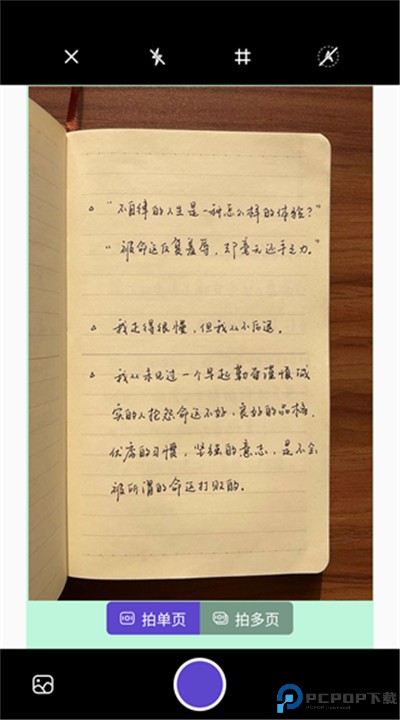 。“不自律的人生是一种怎么样的体验？”
“被命运反复羞辱，却毫无还手之力。”
。我走得很慢，但我从不后退。
。我从未见过一个早起勤奋谨慎诚
实的人抱怨命运不好，良好的品格，
优废的习惯，坚强的意志，是不会
被所谓的命运打败的。
拍单页
拍多页
PCPOP下载